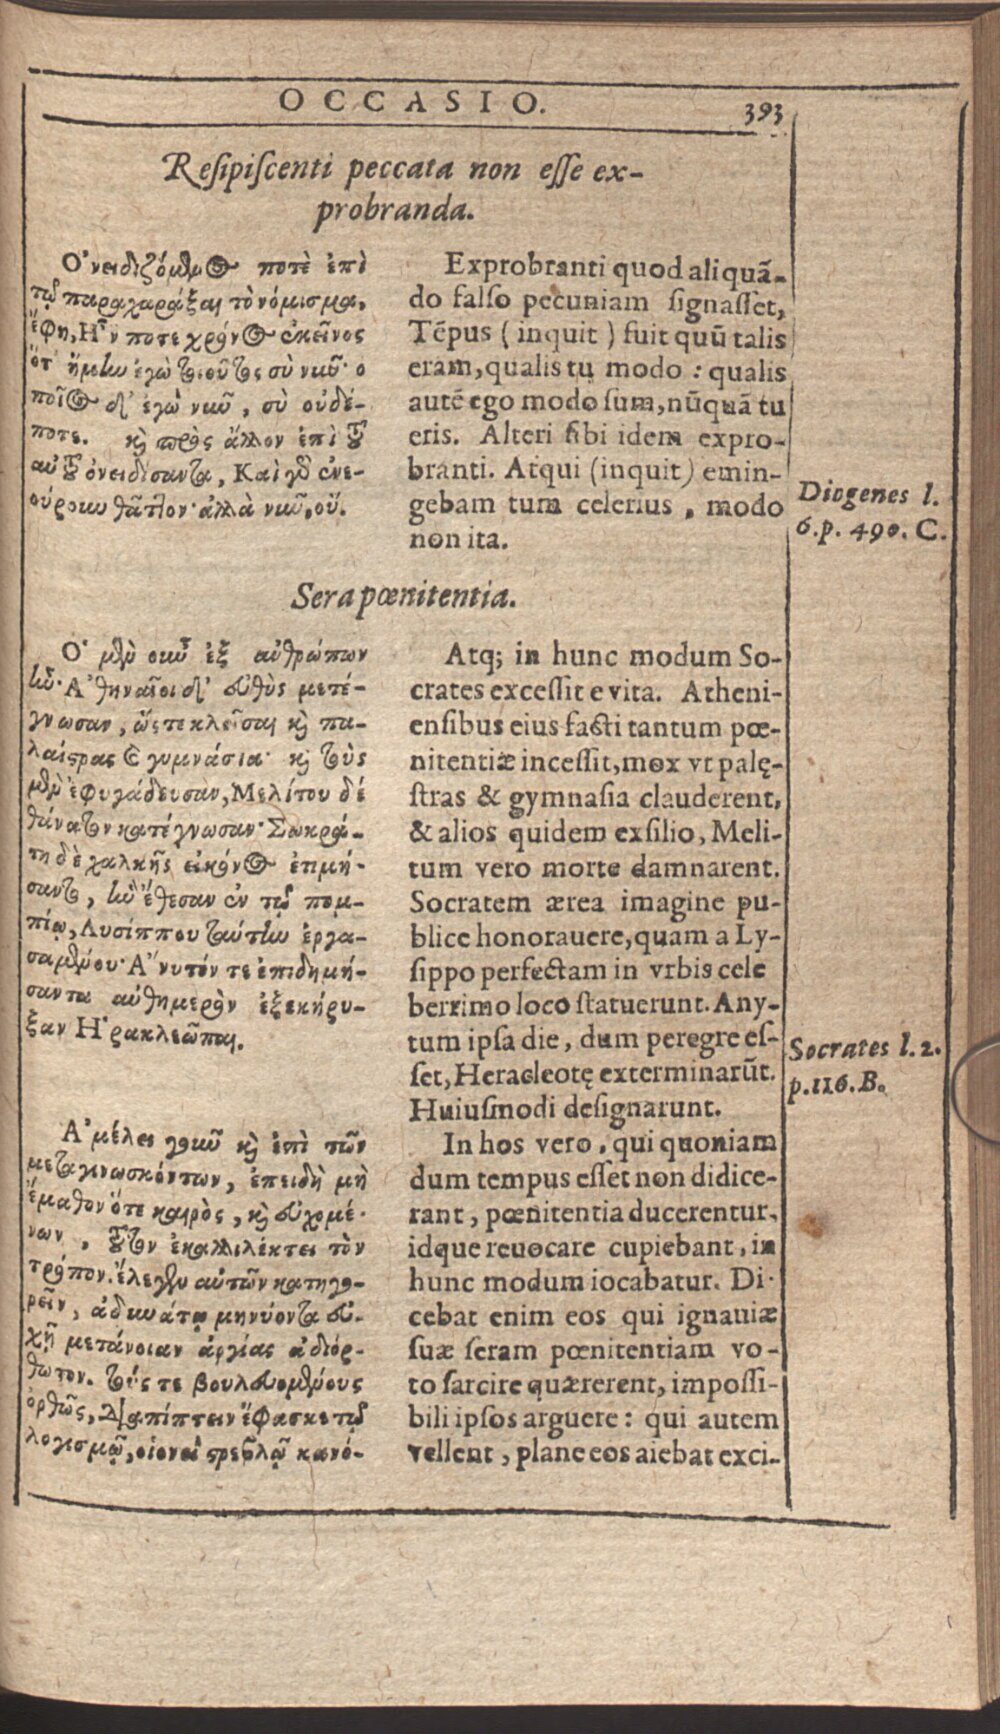 OCCASIO.
393
Resipiscenti peccata non esse ex-
probranda.
Ὀνειδιζόμενος ποτὲ ἐπὶ
τῷ παραχαράξαι τὸ νόμισμα,
ἔφη, Ἦν ποτε χρόνος ἐκεῖνος
ὅτ᾽ ἤμην ἐγὼ τοιοῦτος σὺ νῦν· ὁ
ποῖος δ᾽ ἐγὼ νῦν, σὺ οὐδέ-
ποτε. καὶ πρὸς ἄλλον ἐπὶ τοῦ
αὐτοῦ ὀνειδίσαντα, Καὶ γὰρ ἐνε-
ούρουν θᾶττον· ἀλλὰ νῦν, οὔ.
Exprobranti quod aliquā-
do falso pecuniam signasset,
Tēpus (inquit) fuit quū talis
eram, qualis tu modo: qualis
autē ego modo sum, nūquā tu
eris. Alteri sibi idem expro-
branti. Atqui (inquit) emin-
gebam tum celerius, modo
non ita.
Diogenes l.
6.p. 490. C.
Sera pœnitentia.
Ὁ μὲν οὖν ἐξ ἀνθρώπων
ἦν· Ἀθηναῖοι δ᾽ εὐθὺς μετέ-
γνωσαν, ὥστε κλεῖσαι καὶ πα-
λαίστρας καὶ γυμνάσια· καὶ τοὺς
μὲν ἐφυγάδευσαν, Μελίτου δέ
θάνατον κατέγνωσαν· Σωκρά-
τη δὲ χαλκῆς εἰκόνος ἐτιμή-
σαντο, ἣν ἔθεσαν ἐν τῷ πομ-
πίῳ, Λυσίππου ταύτην ἐργα-
σαμένου· Ἄνυτόν τε ἐπιδημή-
σαντα αὐθημερὸν ἐξεκήρυ-
ξαν Ἡρακλεῶται.
Atq; in hunc modum So-
crates excessit e vita. Atheni-
ensibus eius facti tantum pœ-
nitentiæ incessit, mox vt palę-
stras & gymnasia clauderent,
& alios quidem exsilio, Meli-
tum vero morte damnarent.
Socratem ærea imagine pu-
blice honorauere, quam a Ly-
sippo perfectam in vrbis cele
berrimo loco statuerunt. Any-
tum ipsa die, dum peregre es-
set, Heracleotę exterminarūt.
Huiusmodi designarunt.
Socrates l. 2.
p.116.B.
Ἀμέλει γοῦν καὶ ἐπὶ τῶν
μεταγινωσκόντων, ἐπειδὴ μὴ
ἔμαθον ὅτε καιρὸς, καὶ εὐχομέ-
νων, τοῦτον ἐκαλλιλέκτει τὸν
τρόπον. ἔλεγεν αὐτῶν κατηγο-
ρεῖν, ἀδυνάτῳ μηνύοντα εὐ-
χῇ μετάνοιαν ἀργίας ἀδιόρ-
θωτον. τούς τε βουλευομένους
ὀρθῶς, διαπίπτειν ἔφασκε τῷ
λογισμῷ, οἱονεὶ στρεβλῷ κανό-
In hos vero, qui quoniam
dum tempus esset non didice-
rant, pœnitentia ducerentur,
idque reuocare cupiebant, in
hunc modum iocabatur. Di-
cebat enim eos qui ignauiæ
suæ seram pœnitentiam vo-
to sarcire quærerent, impossi-
bili ipsos arguere: qui autem
vellent, plane eos aiebat exci-